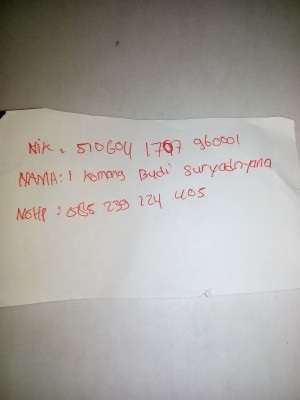 Nik : 510604 1707 960001
NAMA : I Komang Budi Suryadnyana
NoHp : 085 239 224 405